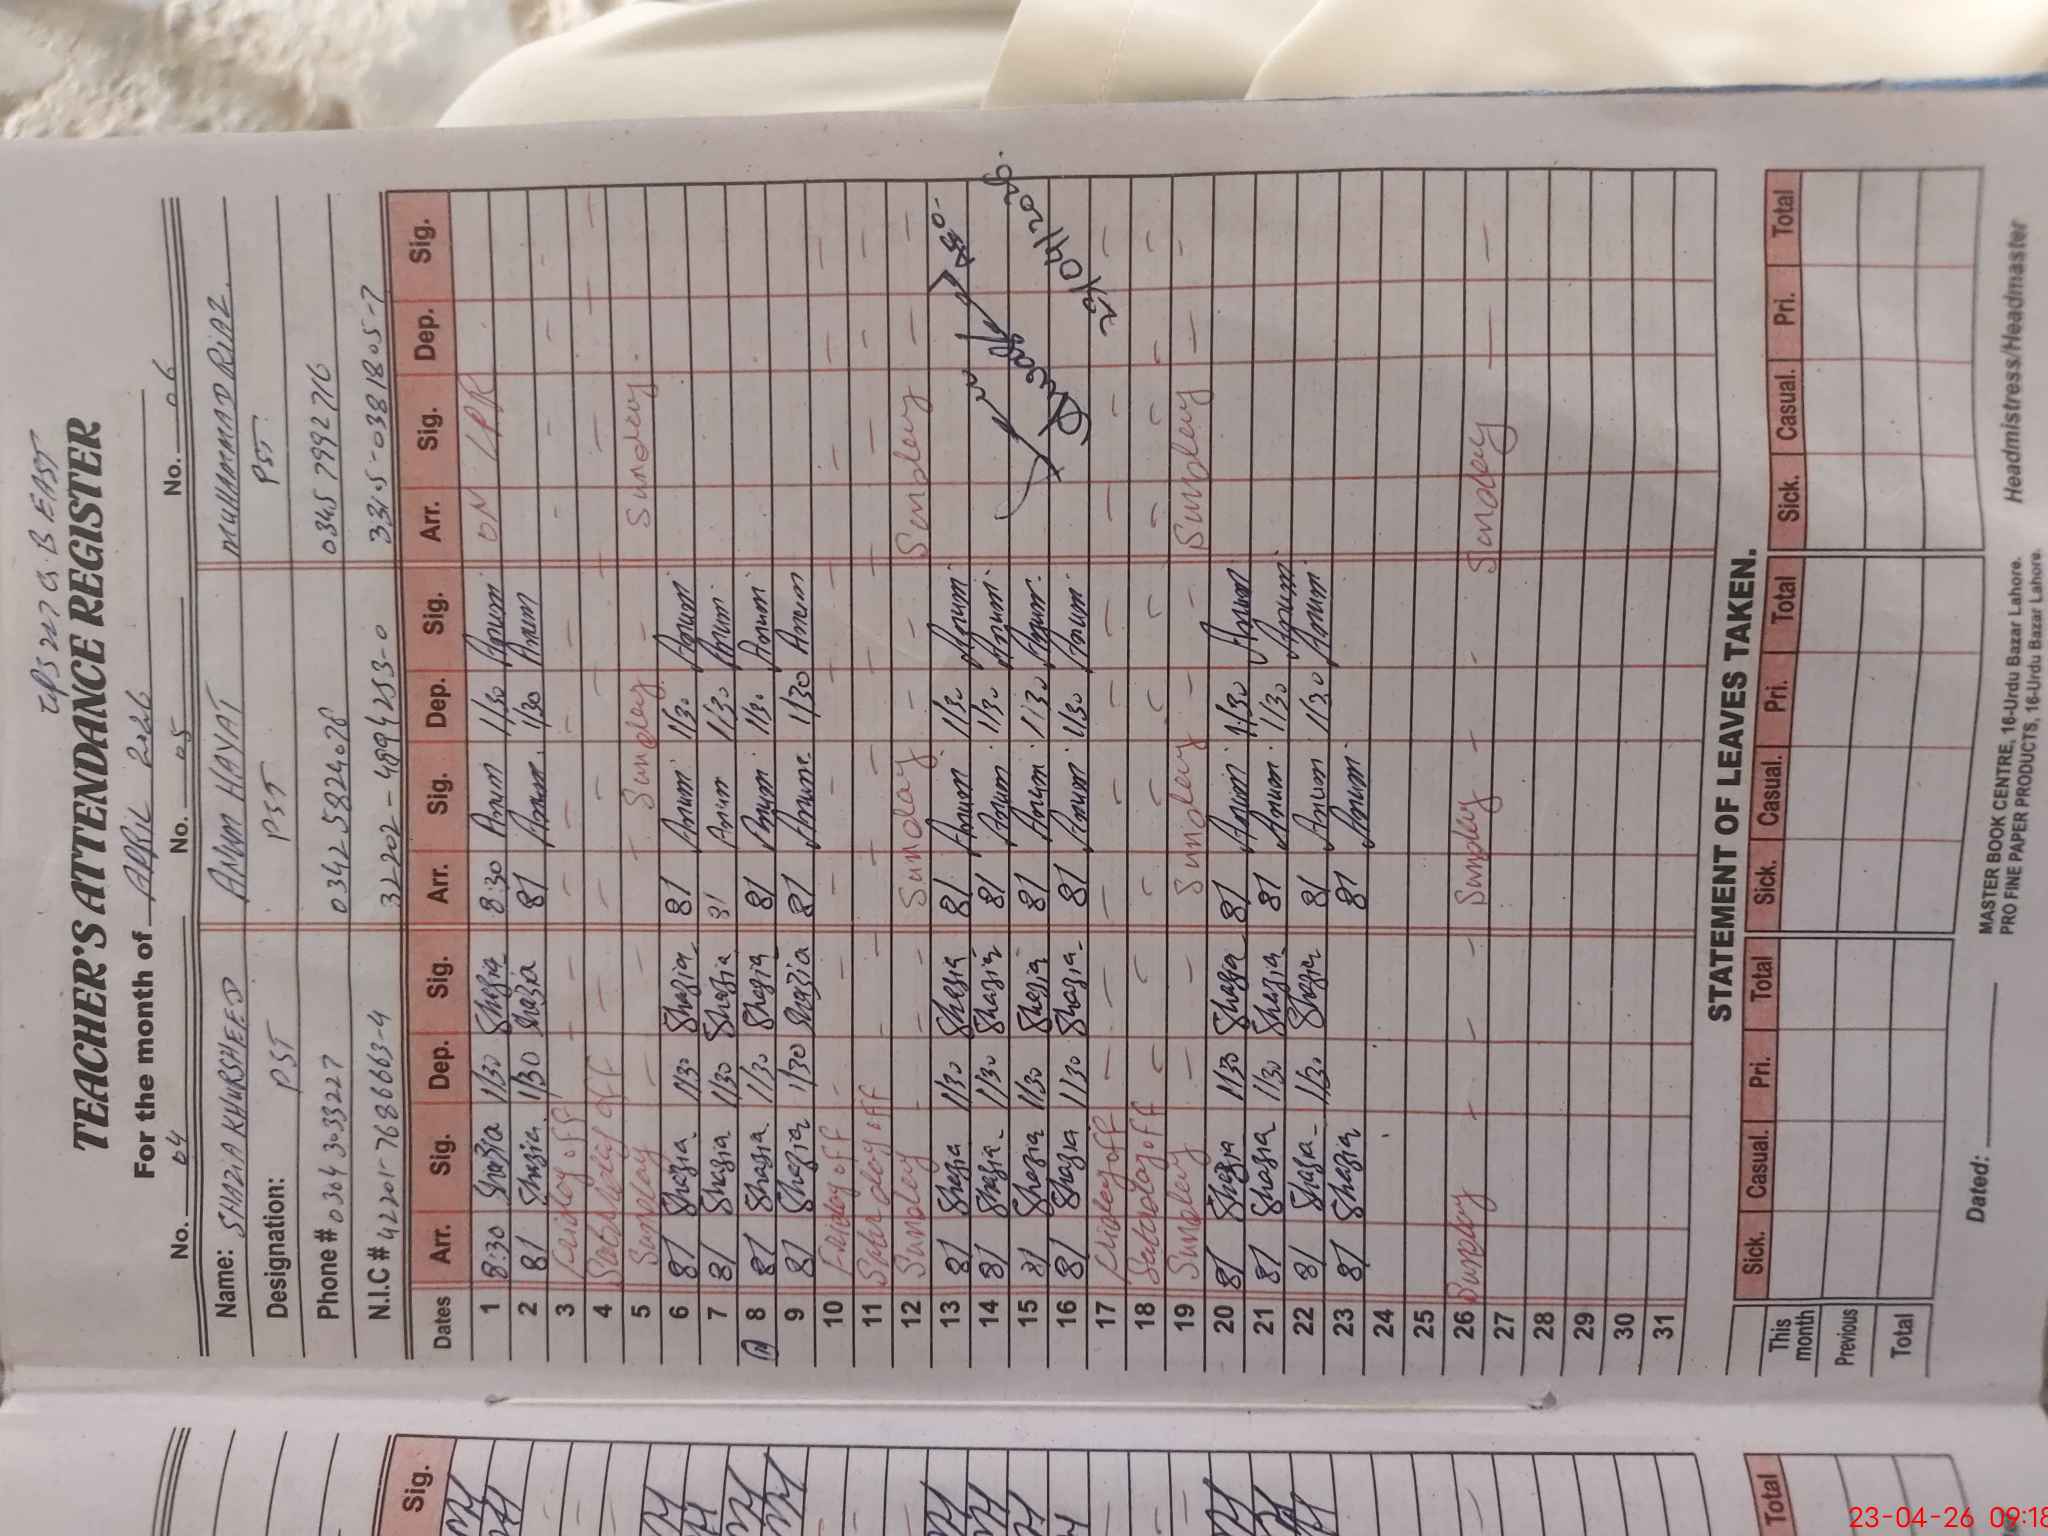 GPS 227 G.B EAST
TEACHER'S ATTENDANCE REGISTER
For the month of APRIL 2026
No. 04 No. 05 No. 06
Name: SHAZIA KHURSHEED ANUM HAYAT MUHAMMAD RIAZ
Designation: PST PST PST
Phone # 0364 3033227 0342 5824028 0345 7992716
N.I.C # 42201-7686663-4 32202-4899253-0 33105-0381805-7
Dates Arr. Sig. Dep. Sig. Arr. Sig. Dep. Sig. Arr. Sig. Dep. Sig.
1 8:30 Shazia 1/30 Shazia 8:30 Anum 1/30 Anum ON LPR
2 8/ Shazia 1/30 Shazia 8/ Anum 1/30 Anum
3 Friday off
4 Saturday off
5 Sunday Sunday Sunday
6 8/ Shazia 1/30 Shazia 8/ Anum 1/30 Anum
7 8/ Shazia 1/30 Shazia 8/ Anum 1/30 Anum
8 8/ Shazia 1/30 Shazia 8/ Anum 1/30 Anum
9 8/ Shazia 1/30 Shazia 8/ Anum 1/30 Anum
10 Friday off
11 Saturday off
12 Sunday Sunday Sunday
13 8/ Shazia 1/30 Shazia 8/ Anum 1/30 Anum
14 8/ Shazia 1/30 Shazia 8/ Anum 1/30 Anum
15 8/ Shazia 1/30 Shazia 8/ Anum 1/30 Anum
16 8/ Shazia 1/30 Shazia 8/ Anum 1/30 Anum
23/04/2026.
17 Friday off
18 Saturday off
19 Sunday Sunday Sunday
20 8/ Shazia 1/30 Shazia 8/ Anum 1/30 Anum
21 8/ Shazia 1/30 Shazia 8/ Anum 1/30 Anum
22 8/ Shazia 1/30 Shazia 8/ Anum 1/30 Anum
23 8/ Shazia 8/ Anum
24
25
26 Sunday Sunday Sunday
27
28
29
30
31
STATEMENT OF LEAVES TAKEN.
Sick. Casual. Pri. Total Sick. Casual. Pri. Total Sick. Casual. Pri. Total
This month
Previous
Total
Dated:
MASTER BOOK CENTRE, 16-Urdu Bazar Lahore.
PRO FINE PAPER PRODUCTS, 16-Urdu Bazar Lahore.
Headmistress/Headmaster
Sig.
Total
23-04-26 09:18